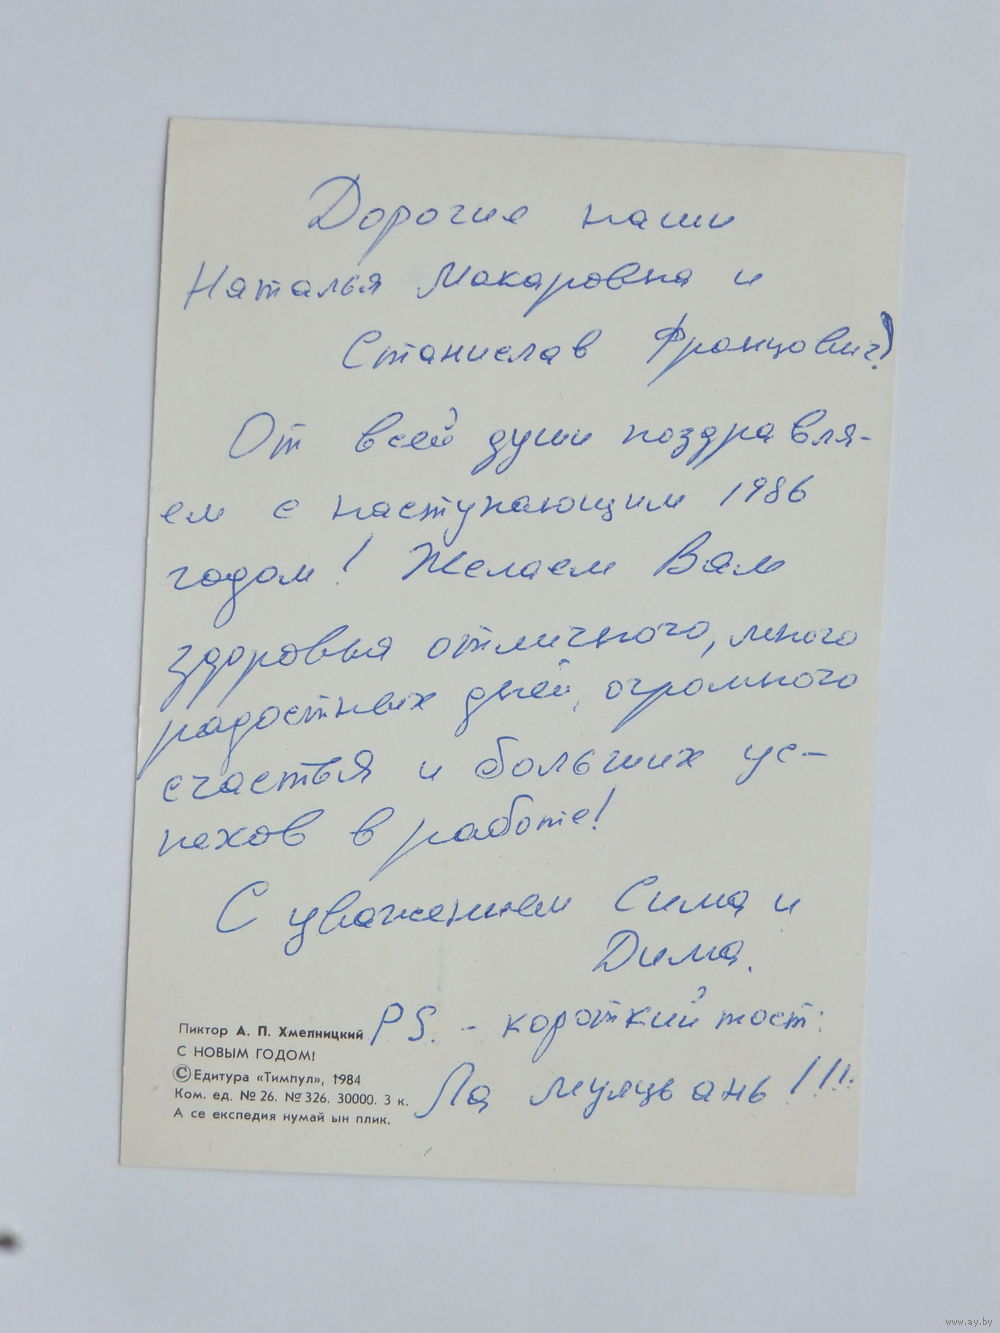 Дорогие наши
Наталья Макаровна и
Станислав Францович!
От всей души поздравля-
ем с наступающим 1986
годом! Желаем Вам
здоровья отличного, много
радостных дней, огромного
счастья и больших ус-
пехов в работе!
С уважением Сима и
Дима.
PS. - короткий тост:
Ла мулць ань!!!!
Пиктор А. П. Хмелницкий
С НОВЫМ ГОДОМ!
© Едитура «Тимпул», 1984
Ком. ед. № 26. № 326. 30000. 3 к.
А се експедия нумай ын плик.
www.ay.by